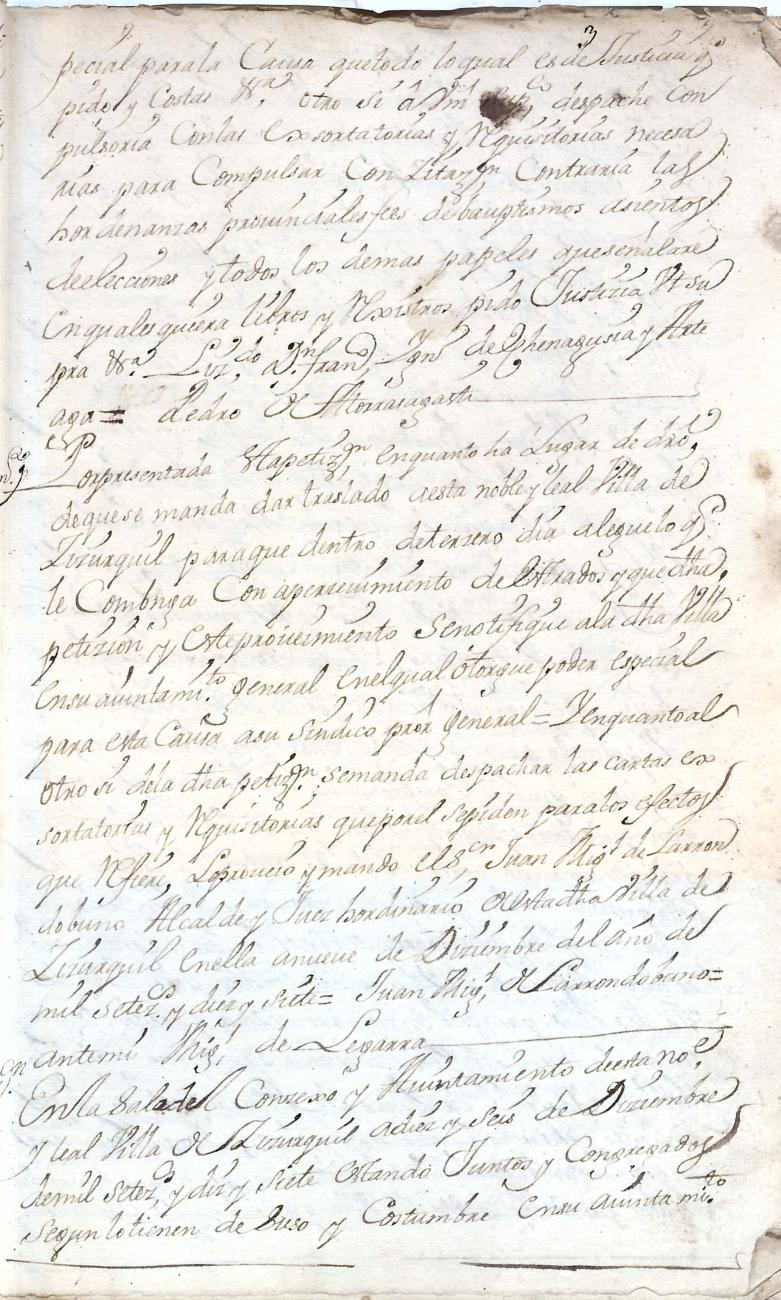 3
pecial para la Causa que todo lo qual es de Justicia q
pido y Costas &a, otro si a Vm despache Con
pulsoria Con las exsortatorias y Requisitorias necesa
rias para Compulsar Con Zitazon Contraria las
hordenanzas provinciales fees de bauptismos asientos
de elecciones y todos los demas papeles que señalare
en qualesquiera libros y Rexistros pido Justizia Ut su
pra &a. Lizdo Dn Franco Ygno de Echenagusia y Arte
aga = Pedro de Atorrasagasti
Por presentada esta petizon, en quanto ha Lugar de dro,
de que se manda dar traslado a esta noble y leal Villa de
Zizurquil para que dentro de terzero dia alegue lo q
le Combnga Con apercevimiento de estrados y que dha,
petizion y este proveimiento se notifique a la dha Villa
en su aiuntamto general en el qual otorgue poder espezial
para esta Causa a su sindico pror general = Y en quanto al
otro si de la dha petizon, se manda despachar las cartas ex
sortatorias y Requisitorias que por el se piden para los efectos
que Refiere, Lo proveio y mando el Sr, Juan Migl de Larron
dobuno Alcalde y Juez hordinario de esta dha Villa de
Zizurquil en ella a nueve de Diziembre del año de
mil setezos y diez y siete = Juan Migl, de Larrondobuno =
ante mi Migl de Legarra
En la Sala del Conzexo y Aiuntamiento de esta noe
y leal Villa de Zizurquil a diez y seis de Diziembre
de mil setezos y diez y siete estando Juntos y Congregados
segun lo tienen de huso y Costumbre en su aiuntamto